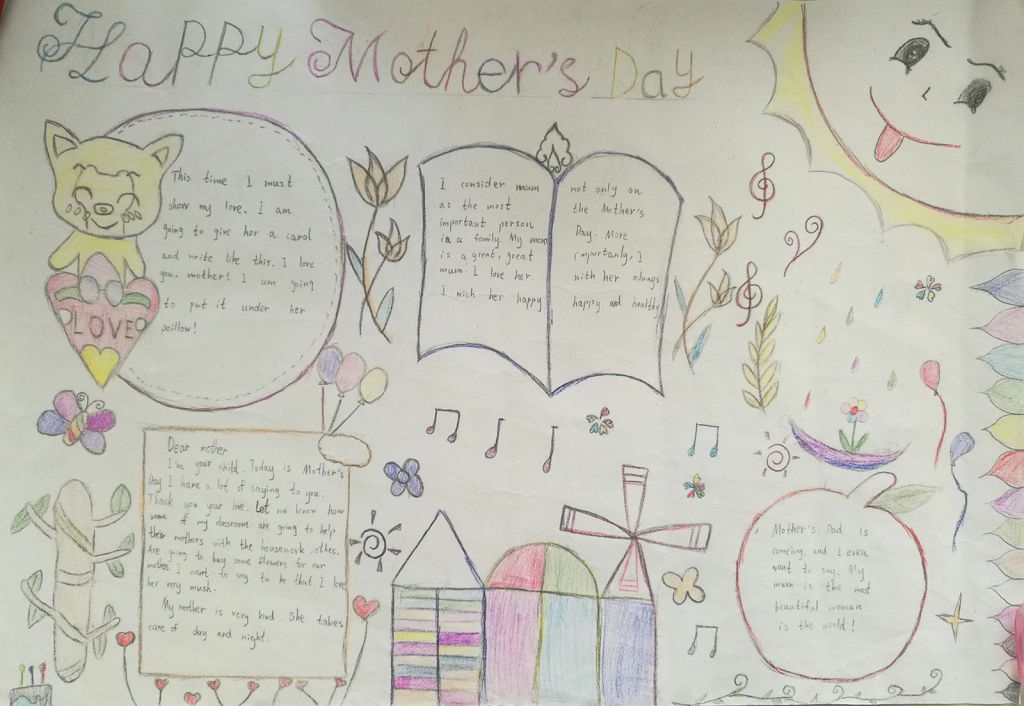 Happy Mother's Day
This time I must
show my love. I am
going to give her a carol
and write like this. I love
you, mother! I am going
to put it under her
poillow!
LOVE
I consider mum
as the most
important person
in a family. My mom
is a great, great
mum. I love her.
I wish her happy
not only on
the Mother's
Day. More
importanly, I
wish her always
happy and healthy
Dear mother
I'm your shild. Today is Mother's
Day I have a lot of saying to you.
Thank you your love. Let me know how
some of my classroom are going to help
their mothers with the housework. others.
Are going to buy some flowers for our
mother. I want to say to he that I love
her very mush.
My mother is very kind. She takes
care of day and night.
Mother's Dad is
comeing. and I even
want to say. My
mum is the most
beautiful woman
is the world!